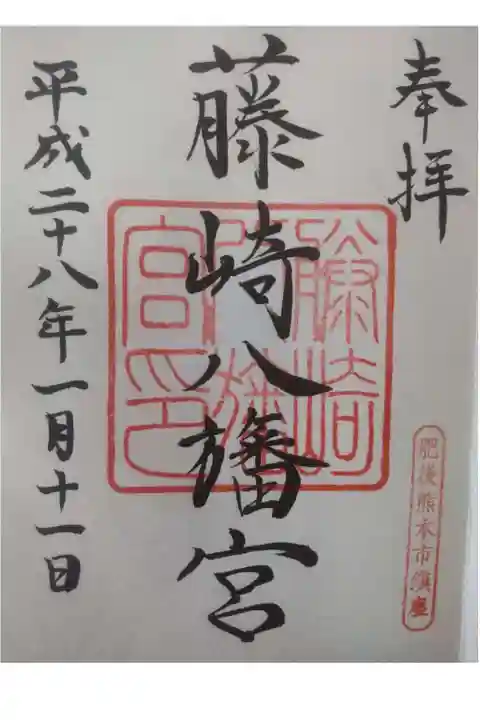 奉拝
肥後熊本市鎮座
藤崎八旛宮
藤崎八旛宮印
平成二十八年一月十一日